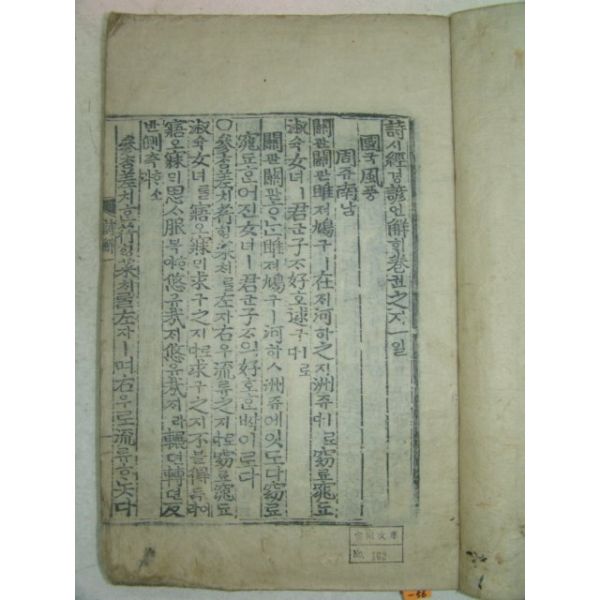 詩시經경諺언解ᄒᆡ卷권之지一일
國국風풍
周쥬南남
關관關관雎져鳩구ㅣ在ᄌᆡ河하之지洲쥬ㅣ로다窈요窕됴
淑슉女녀ㅣ君군子ᄌᆞ好호逑구ㅣ로다
關관關관ᄒᆞᄂᆞᆫ雎져鳩구ㅣ河하ㅅ洲쥬에잇도다窈요
窕됴ᄒᆞᆫ어진女녀ㅣ君군子ᄌᆞ의好호ᄒᆞᆫᄧᅡᆨ이로다
○參ᄎᆞᆷ差치荇ᄒᆡᆼ菜ᄎᆡ를左자右우流류之지로다窈요窕됴
淑슉女녀를寤오寐ᄆᆡ求구之지로다求구之지不블得득이라
寤오寐ᄆᆡ思ᄉᆞ服복ᄒᆞ야悠유哉ᄌᆡ悠유哉ᄌᆡ라輾뎐轉뎐反
반側측ᄒᆞ소라
參ᄎᆞᆷ差치ᄒᆞᆫ荇ᄒᆡᆼ菜ᄎᆡ를左자ㅣ며右우로流류ᄒᆞ놋다
No. 162
-56